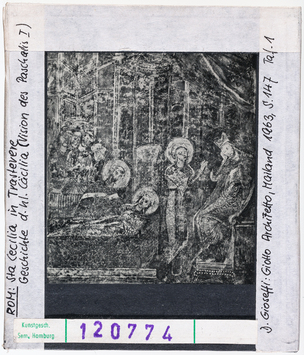 ROM: Sta Cecilia in Trastevere
Geschichte d. hl. Cäcilia (Vision des Paschalis I)
J. Gioseffi: Giotto Architetto, Mailand 1963, S. 147 Taf. 1
Kunstgesch.
Sem. Hamburg.
120774